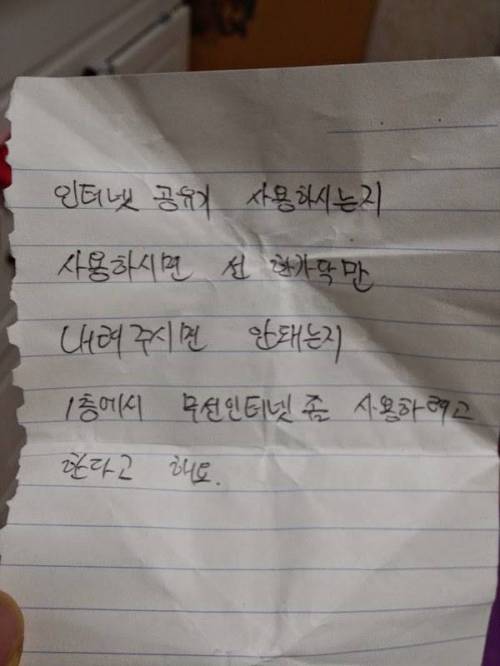 인터넷 공유기 사용하시는지
사용하시면 선 한가닥만
내려주시면 안돼는지
1층에서 무선인터넷 좀 사용하려고
한다고 해요.